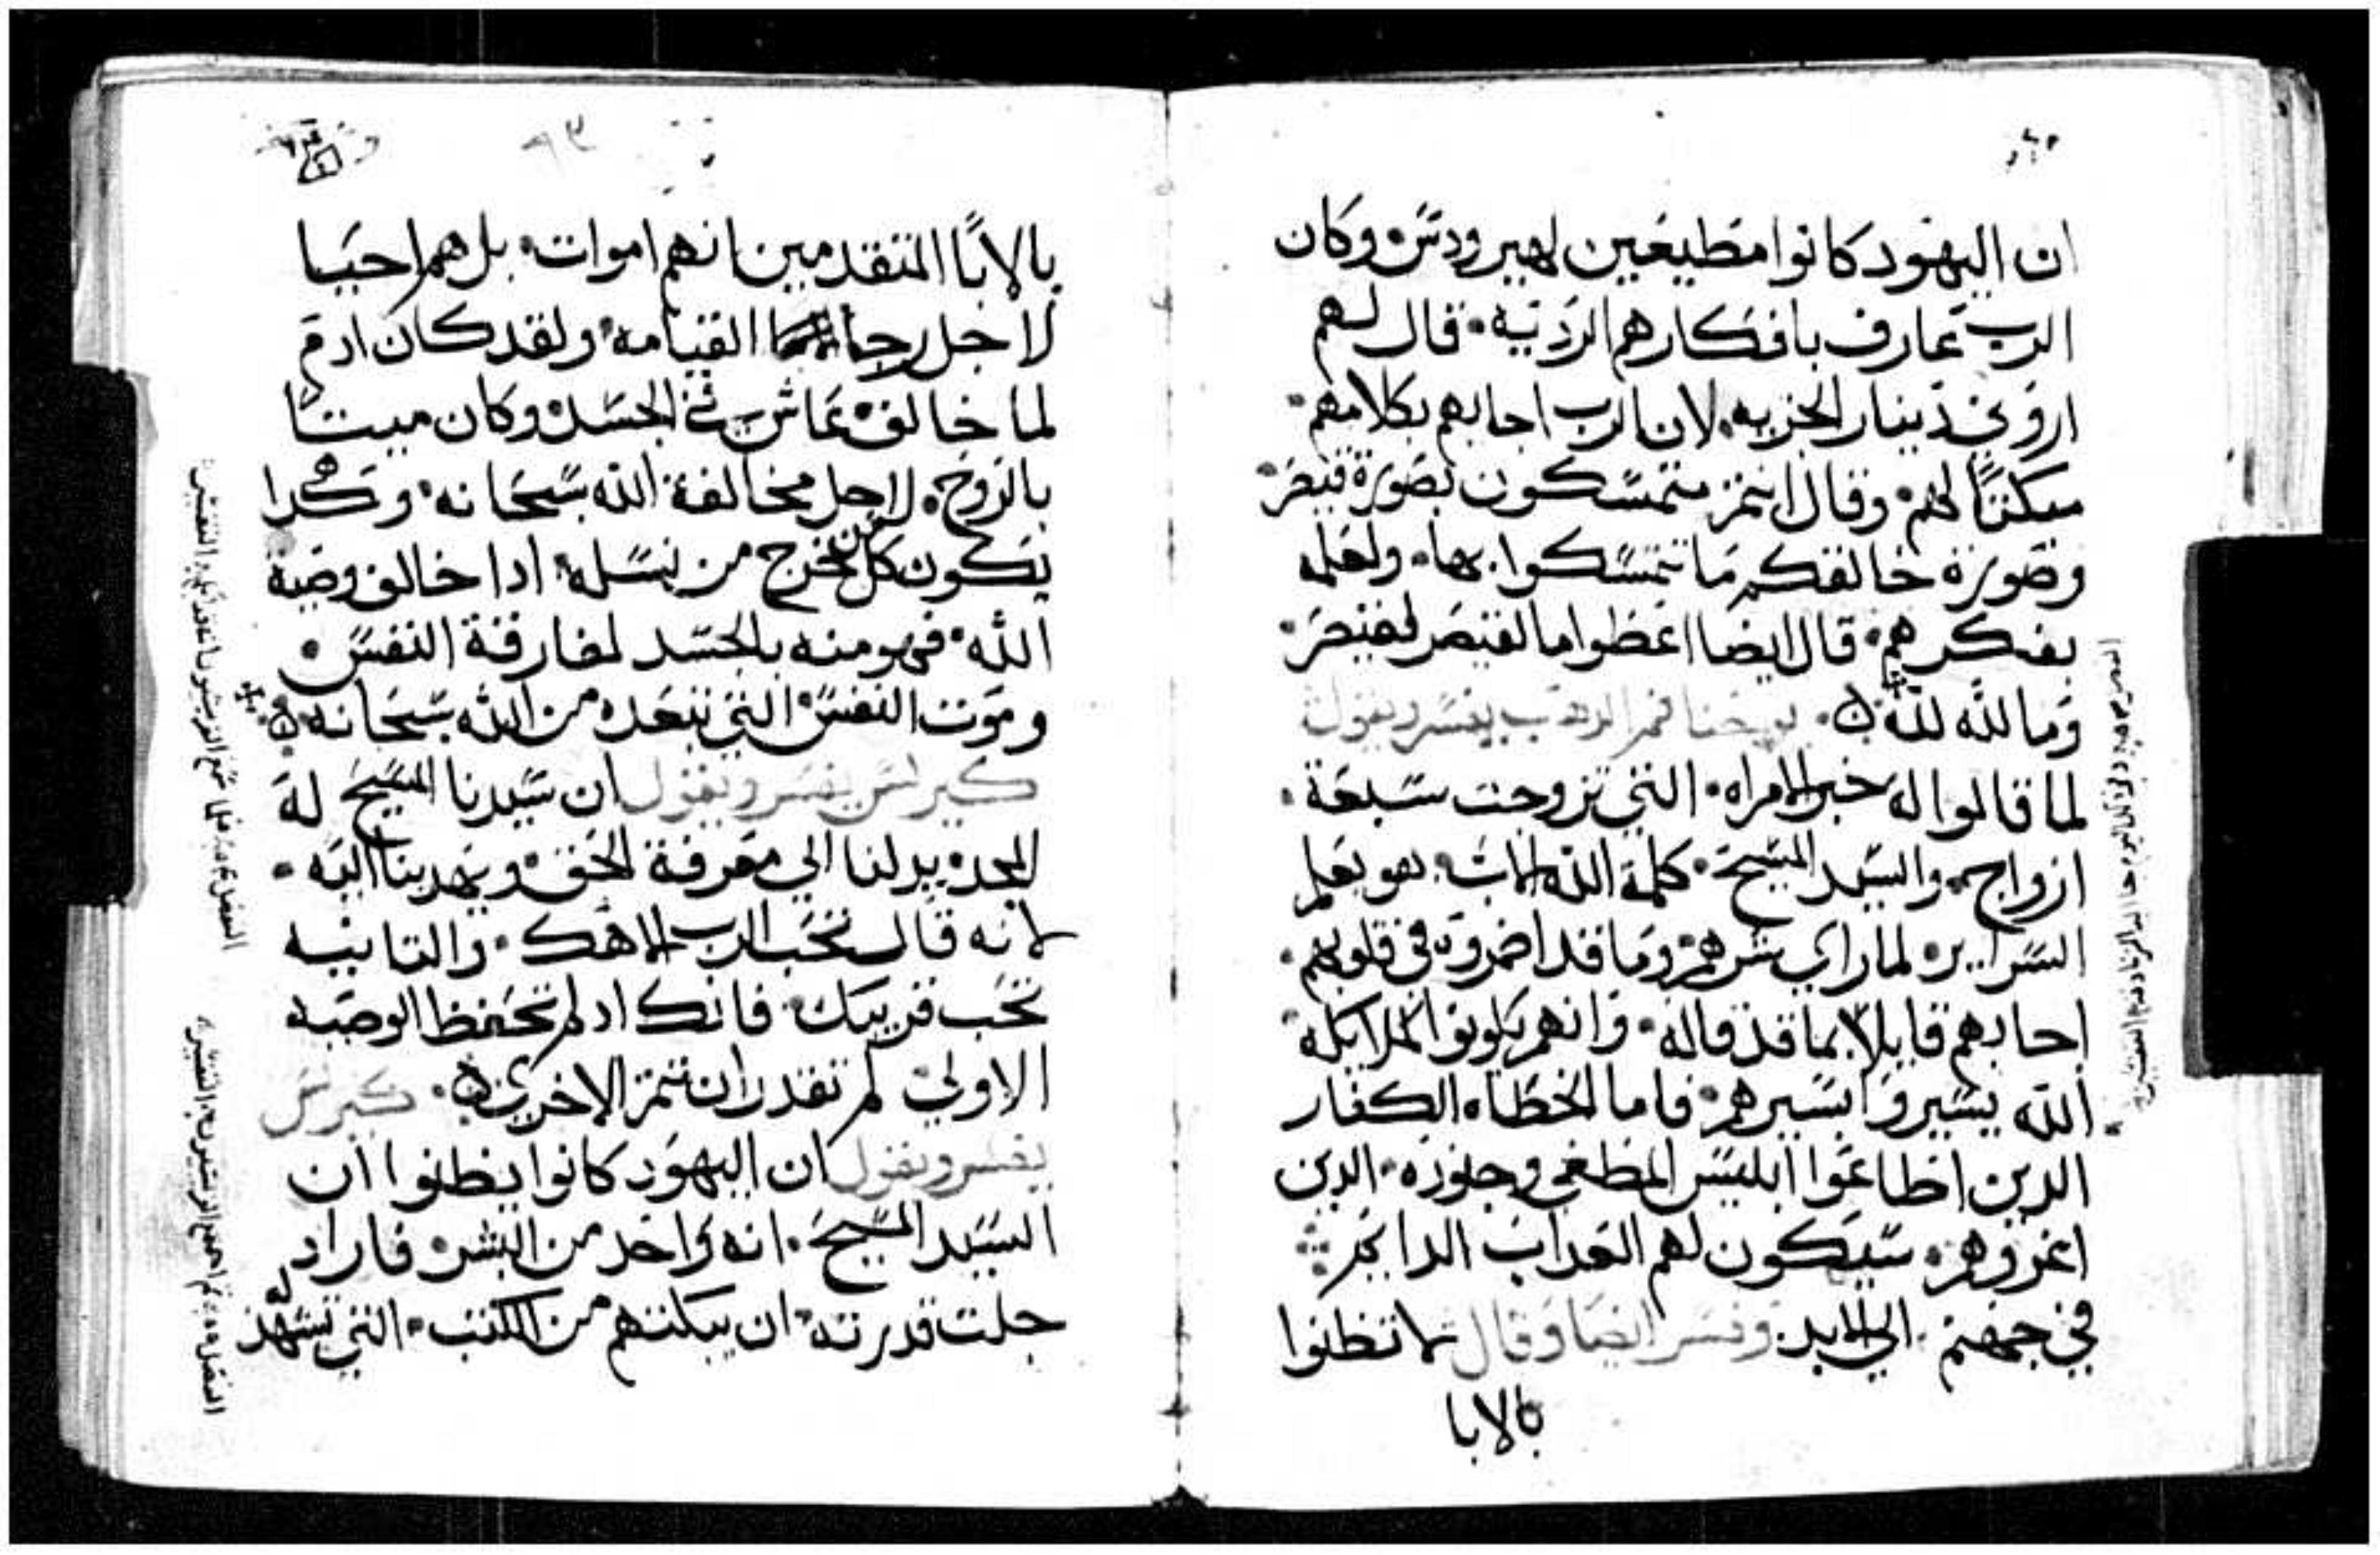 ان اليهود كانوا مطيعين لهيرودس وكان
الرب عارف بافكارهم الرديه قال لهم
اروني دينار الجزيه لان الرب اجابهم بكلامهم
مبكتًا لهم وقال انتم متمسكون بصورة قيصر
وصورة خالقكم ما تتمسكوا بها ولعلمه
بفكرهم قال ايضا اعطوا ما لقيصر لقيصر
وما لله لله يوحنا فم الدهب يفسر ويقول
لما قالوا له خبر الامراه التي تزوجت سبعة
ازواج والسيد المسيح كلمة الله الاب هو يعلم
السراير لما راي شرهم وما قد اضمروه في قلوبهم
اجابهم قايلا بما قد قاله وانهم يكونوا كملايكه
الله يسيروا بسيرهم فاما الخطاه الكفار
الدين اطاعوا ابليس المطغي وجنوده الدين
اغروهم سيكون لهم العداب الدايم
في جهنم الي الابد وفسر ايضا وقال لا تظنوا
بالابا
بالابًا المتقدمين انهم اموات بل هم احيا
لاجل رجا القيامه ولقد كان ادم
لما خالف عاش في الجسد وكان ميتًا
بالروح لاجل مخالفة الله سبحانه وهكدا
يكون كل من يخرج من نسله ادا خالف وصية
الله فهو منه بالجسد لمفارقة النفس
وموت النفس التي تبعده من الله سبحانه
كيرلس يفسر ويقول ان سيدنا المسيح له
المجد يدلنا الي معرفة الحق ويهدينا اليه
لانه قال تحب الرب الاهك والتانيه
تحب قريبك فانك اد لم تحفظ الوصيه
الاولي لم تقدر ان تتم الاخري كيرلس
يفسر ويقول ان اليهود كانوا يظنوا ان
السيد المسيح انه واحد من البشر فاراد
جلت قدرته ان يبكتهم من الكتب التي تشهد له